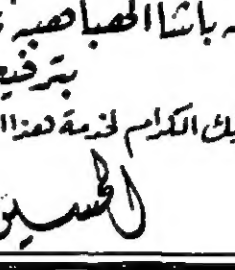 باشا الصباصبه
بترفيع
الكرام لخدمة هذا ا
الحسين